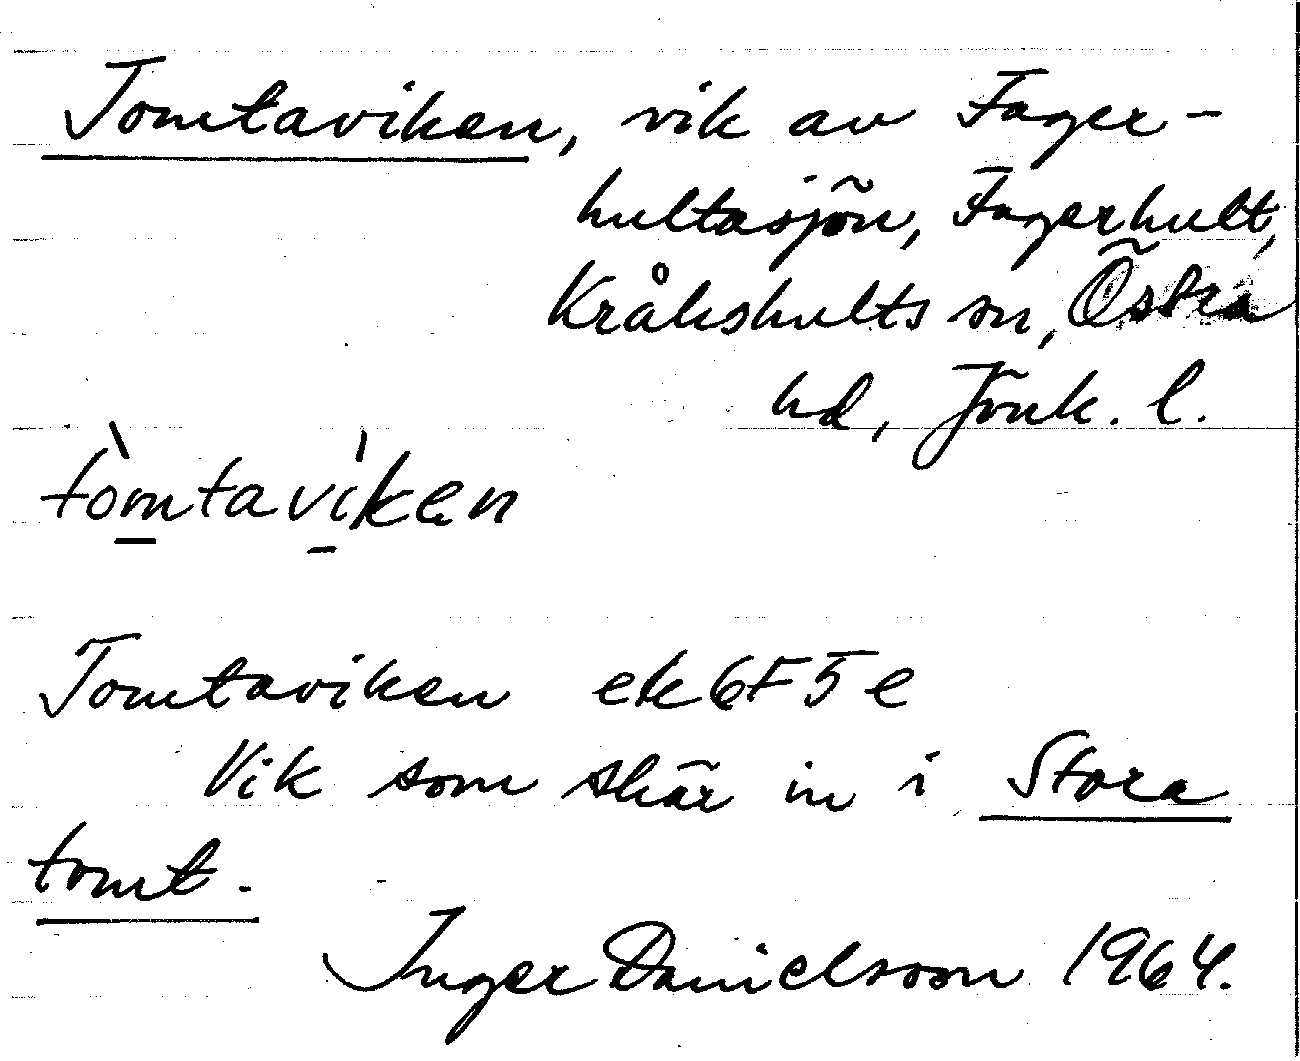 Tomtaviken, vik av Fager-
hultasjön, Fagerhult,
Kråkshults sn, Östra
hd, Jönk. l.
tòmtavìken
Tomtaviken ek6F5e
Vik som skär in i Stora
tomt.
Inger Danielsson 1964.